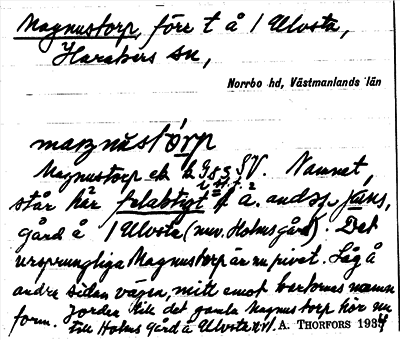 Magnustorp, förr t å 1 Ulvsta,
Harakers sn,
Norrbo hd, Västmanlands län
magnustorp
Magnustorp ek bl G 83 SV. Namnet
står här felaktigt å
gård å 1 Ulvsta (nuv. Holms gård). Det
ursprungliga Magnustorp är nu rivet. Låg å
andra sidan vägen, mitt emot kartonas namn
form. Jorden till det gamla Magnustorp hör nu
till Holms gård å Ulvsta
A. THORFORS 1934